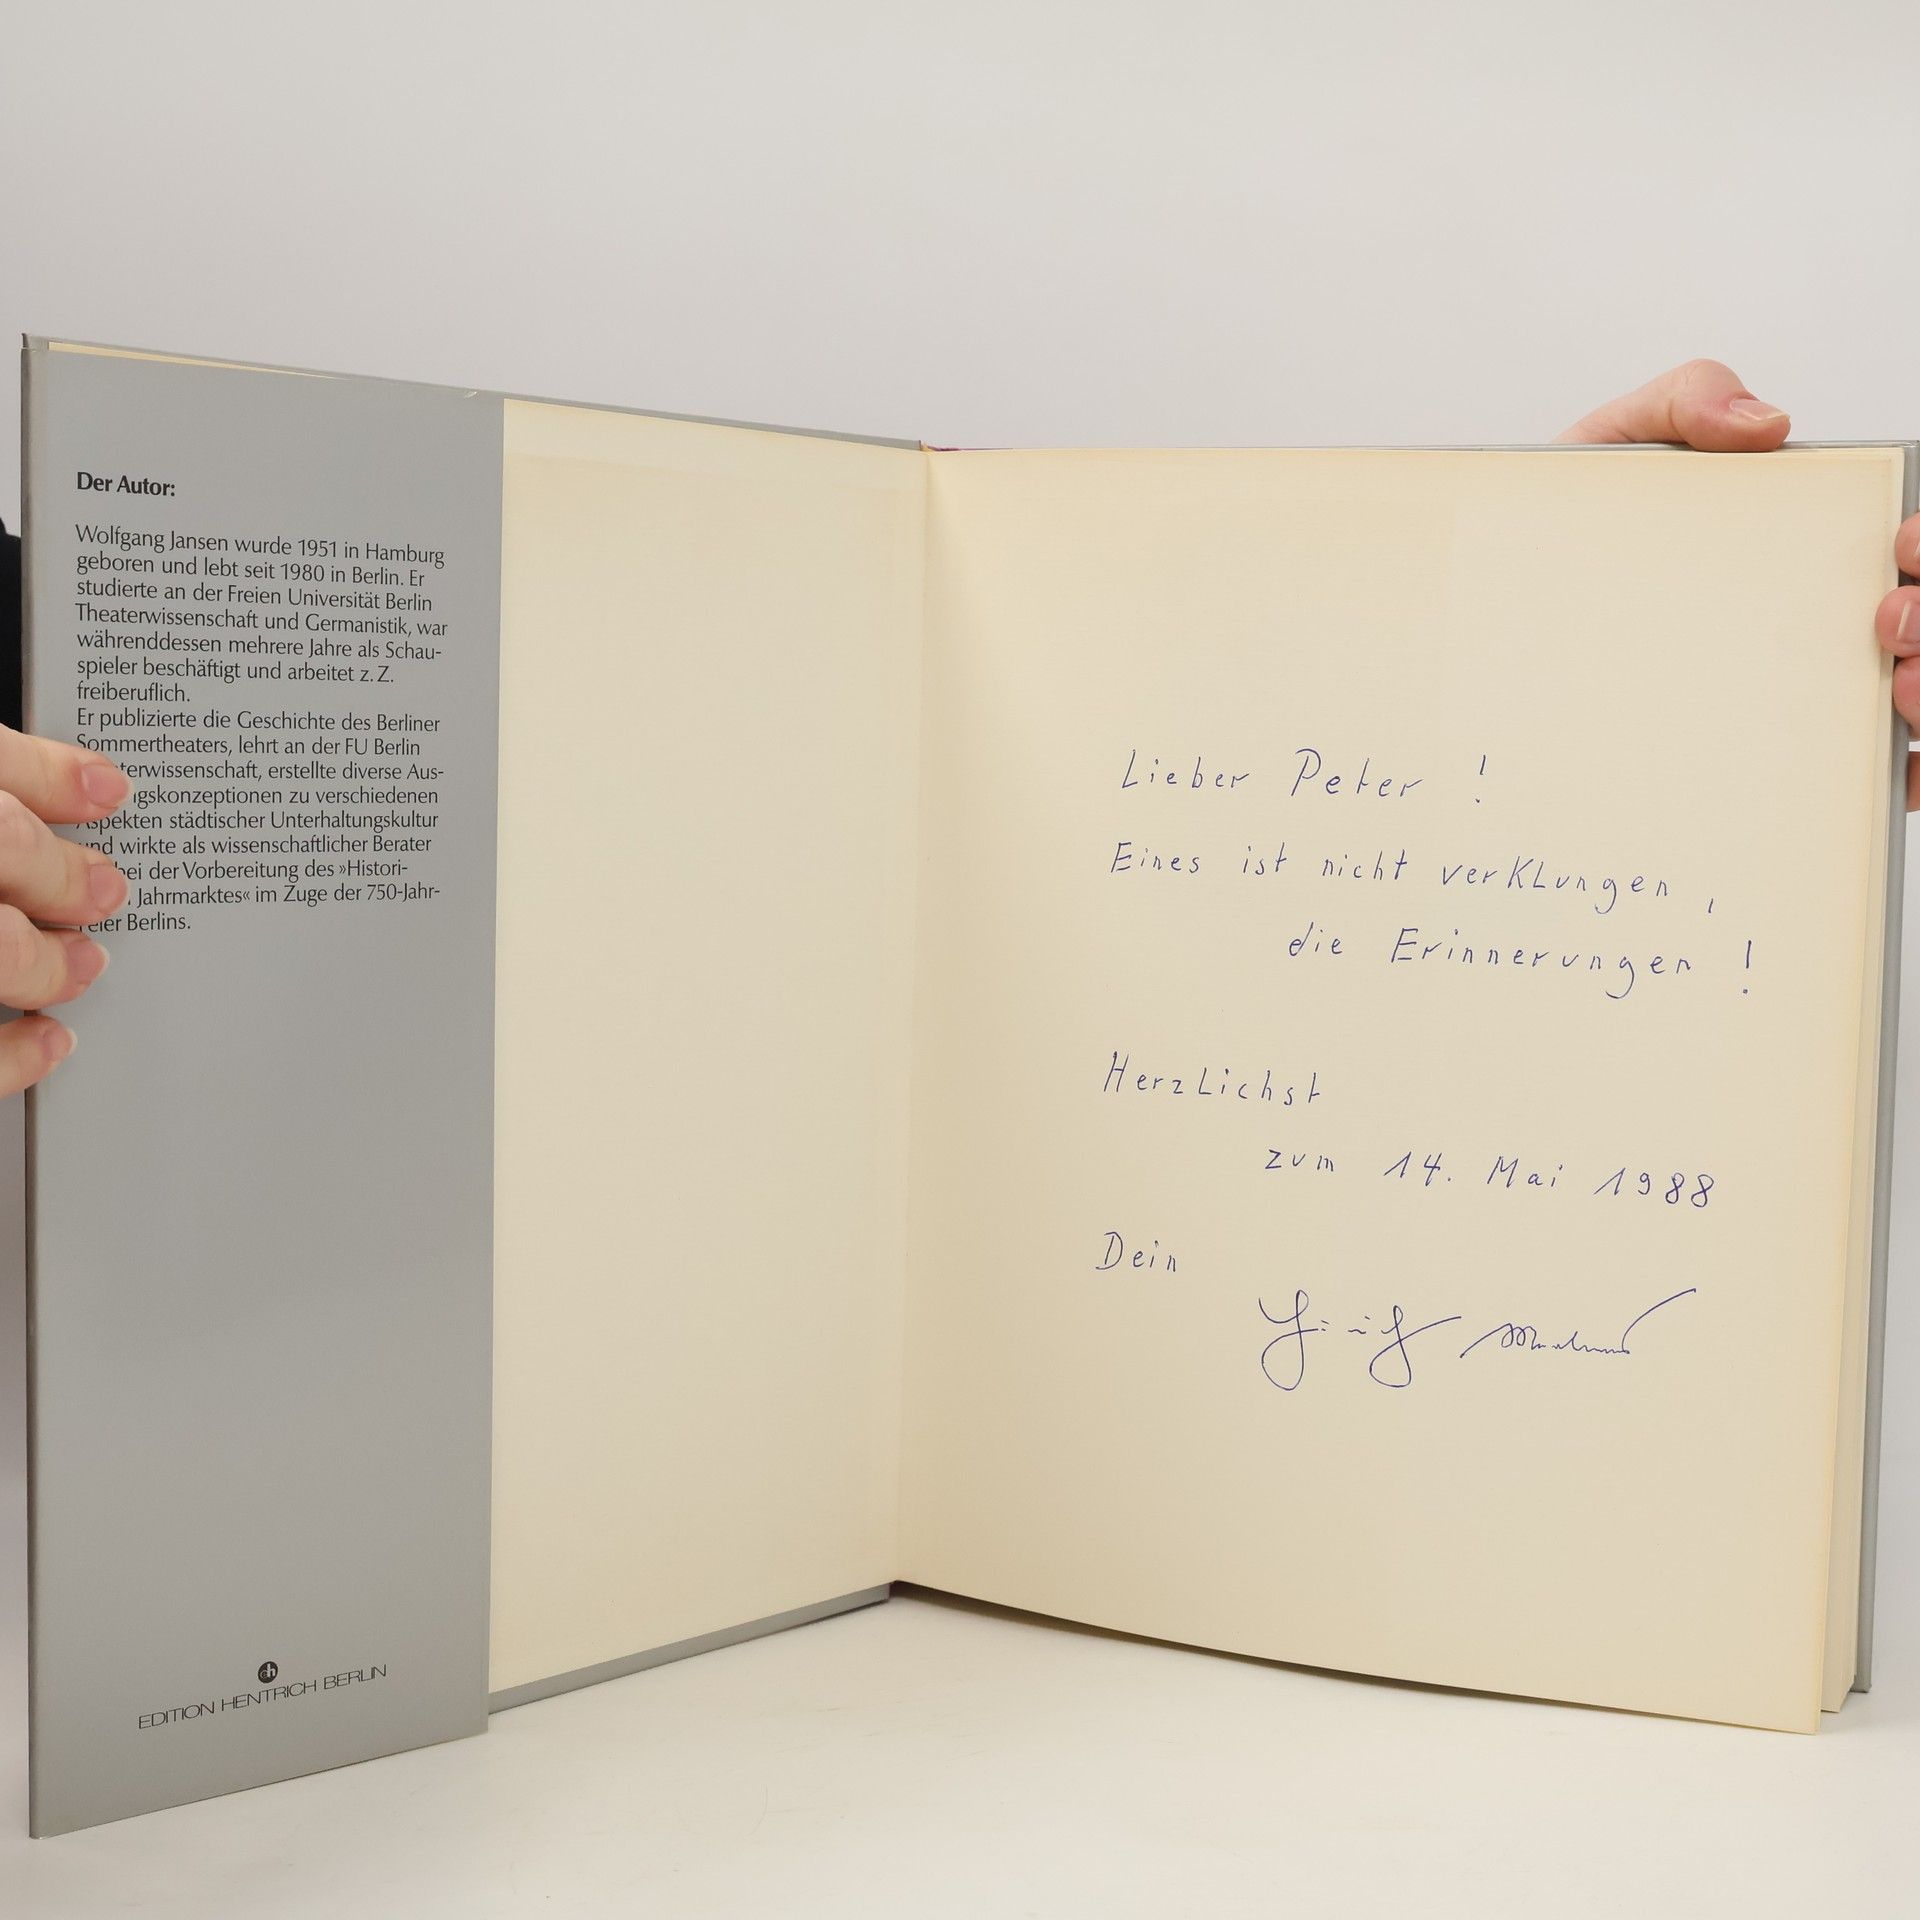 Der Autor:
Wolfgang Jansen wurde 1951 in Hamburg
geboren und lebt seit 1980 in Berlin. Er
studierte an der Freien Universität Berlin
Theaterwissenschaft und Germanistik, war
währenddessen mehrere Jahre als Schau-
spieler beschäftigt und arbeitet z. Z.
freiberuflich.
Er publizierte die Geschichte des Berliner
Sommertheaters, lehrt an der FU Berlin
terwissenschaft, erstellte diverse Aus-
gskonzeptionen zu verschiedenen
Aspekten städtischer Unterhaltungskultur
und wirkte als wissenschaftlicher Berater
bei der Vorbereitung des »Histori-
Jahrmarktes« im Zuge der 750-Jahr-
feier Berlins.
eh
EDITION HENTRICH BERLIN
Lieber Peter !
Eines ist nicht verklungen,
die Erinnerungen !
Herzlichst
zum 14. Mai 1988
Dein